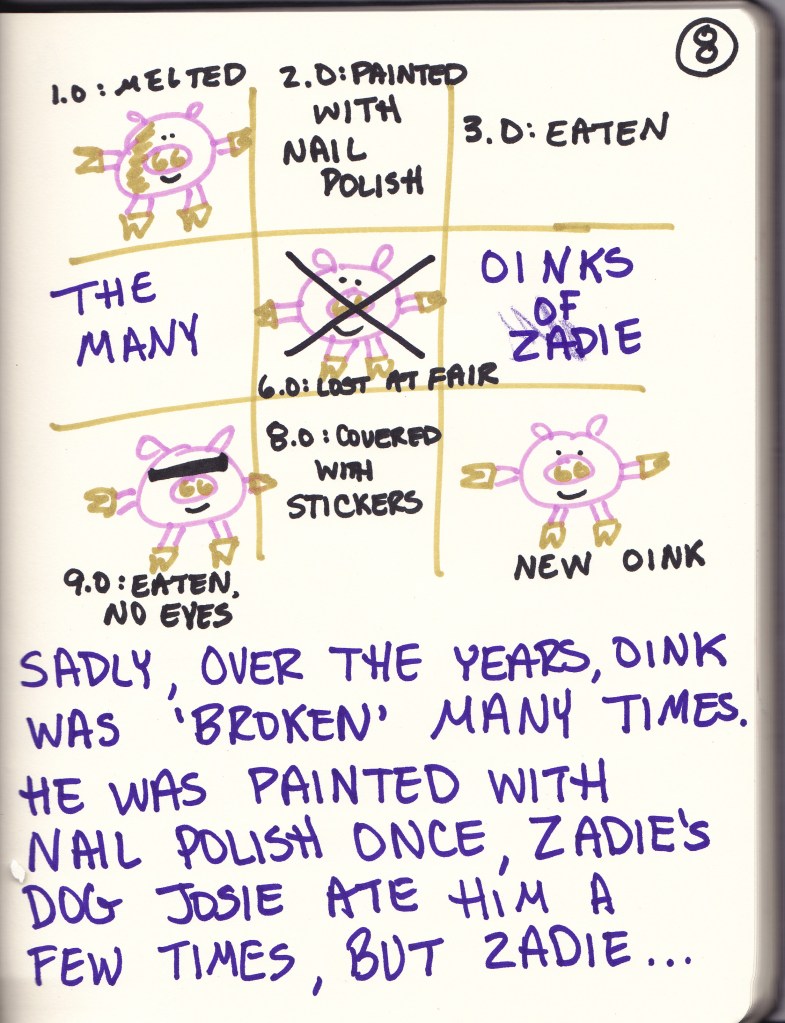 8
1.0: MELTED
2.0: PAINTED
WITH
NAIL
POLISH
3.0: EATEN
THE
MANY
6.0: LOST AT FAIR
OINKS
OF
ZADIE
9.0: EATEN,
NO EYES
8.0: COVERED
WITH
STICKERS
NEW OINK
SADLY, OVER THE YEARS, OINK
WAS 'BROKEN' MANY TIMES.
HE WAS PAINTED WITH
NAIL POLISH ONCE, ZADIE'S
DOG JOSIE ATE HIM A
FEW TIMES, BUT ZADIE...